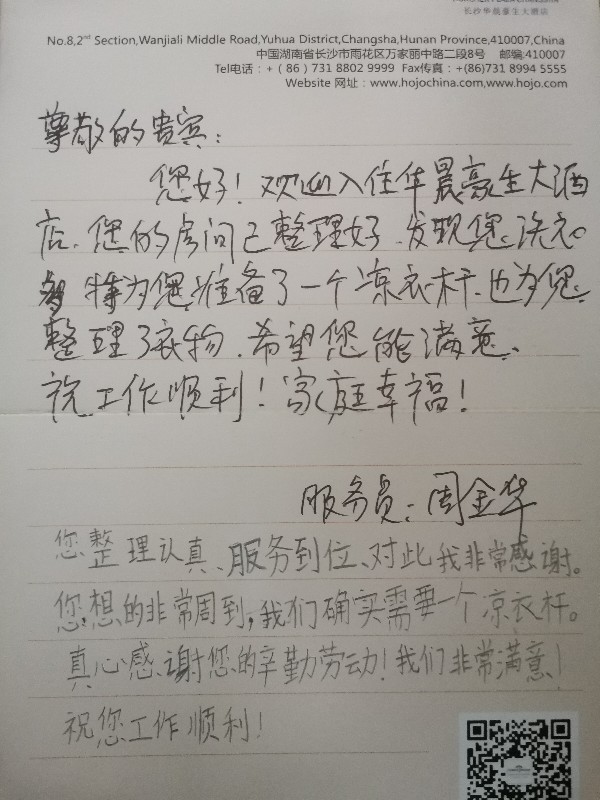 长沙华晨豪生大酒店
No.8,2nd Section,Wanjiali Middle Road,Yuhua District,Changsha,Hunan Province,410007,China
中国湖南省长沙市雨花区万家丽中路二段8号 邮编:410007
Tel电话：+（86）731 8802 9999 Fax传真：+(86)731 8994 5555
Website 网址：www.hojochina.com,www.hojo.com
尊敬的贵宾：
您好！欢迎入住华晨豪生大酒
店、您的房间已整理好、发现您洗衣。
特为您准备了一个凉衣杆、也为您
整理了衣物、希望您能满意、
祝工作顺利！家庭幸福！
服务员：周金华
您整理认真、服务到位、对此我非常感谢。
您想的非常周到,我们确实需要一个凉衣杆。
真心感谢您的辛勤劳动！我们非常满意！
祝您工作顺利！